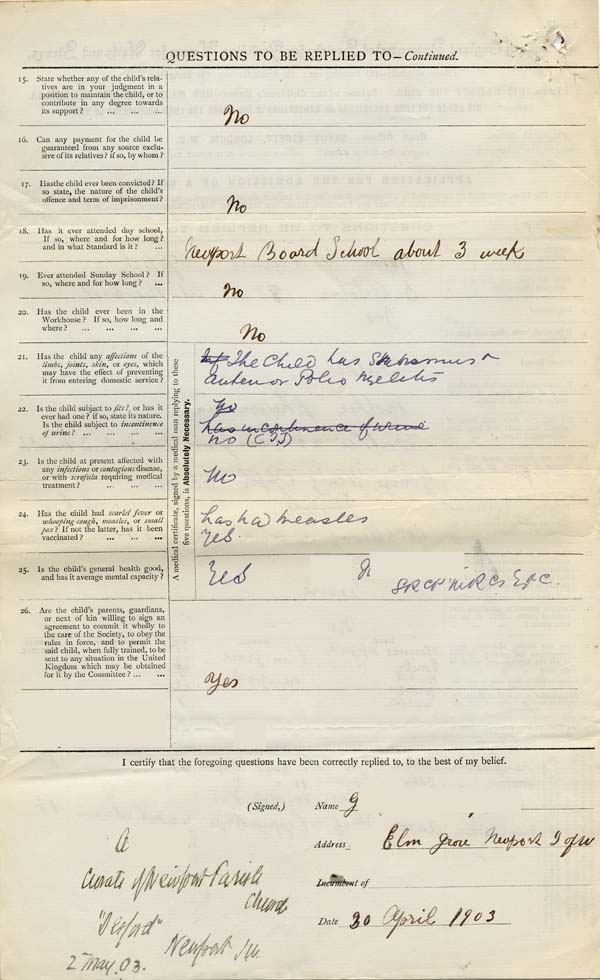 QUESTIONS TO BE REPLIED TO—Continued.
15. State whether any of the child's rela-
tives are in your judgment in a
position to maintain the child, or to
contribute in any degree towards
its support? ... ... ...
No
16. Can any payment for the child be
guaranteed from any source exclu-
sive of its relatives? if so, by whom?
17. Has the child ever been convicted? If
so state, the nature of the child's
offence and term of imprisonment?
No
18. Has it ever attended day school,
If so, where and for how long?
and in what Standard is it? ...
Newport Board School about 3 weeks
19. Ever attended Sunday School? If
so, where and for how long? ...
No
20. Has the child ever been in the
Workhouse? If so, how long and
where? ... ... ... ...
No
A medical certificate, signed by a medical man replying to these
five questions, is Absolutely Necessary.
21. Has the child any affections of the
limbs, joints, skin, or eyes, which
may have the effect of preventing
it from entering domestic service?
The Child has
anterior Polio Myelitis
22. Is the child subject to fits? or has it
ever had one? if so, state its nature.
Is the child subject to incontinence
of urine? ... ... ... ...
has incontinence of urine
no
23. Is the child at present affected with
any infectious or contagious disease,
or with scrofula requiring medical
treatment? ... ... ...
No
24. Has the child had scarlet fever or
whooping cough, measles, or small
pox? If not the latter, has it been
vaccinated? ... ... ...
has had measles
Yes.
25. Is the child's general health good,
and has it average mental capacity?
Yes
26. Are the child's parents, guardians,
or next of kin willing to sign an
agreement to commit it wholly to
the care of the Society, to obey the
rules in force, and to permit the
said child, when fully trained, to be
sent to any situation in the United
Kingdom which may be obtained
for it by the Committee? ... ...
Yes
I certify that the foregoing questions have been correctly replied to, to the best of my belief.
(Signed,) Name G
Address Elm Grove Newport I of W
Incumbent of
Date 30 April 1903
A
Curate of Newport Parish
Church
Newport I.W.
2 May 03.